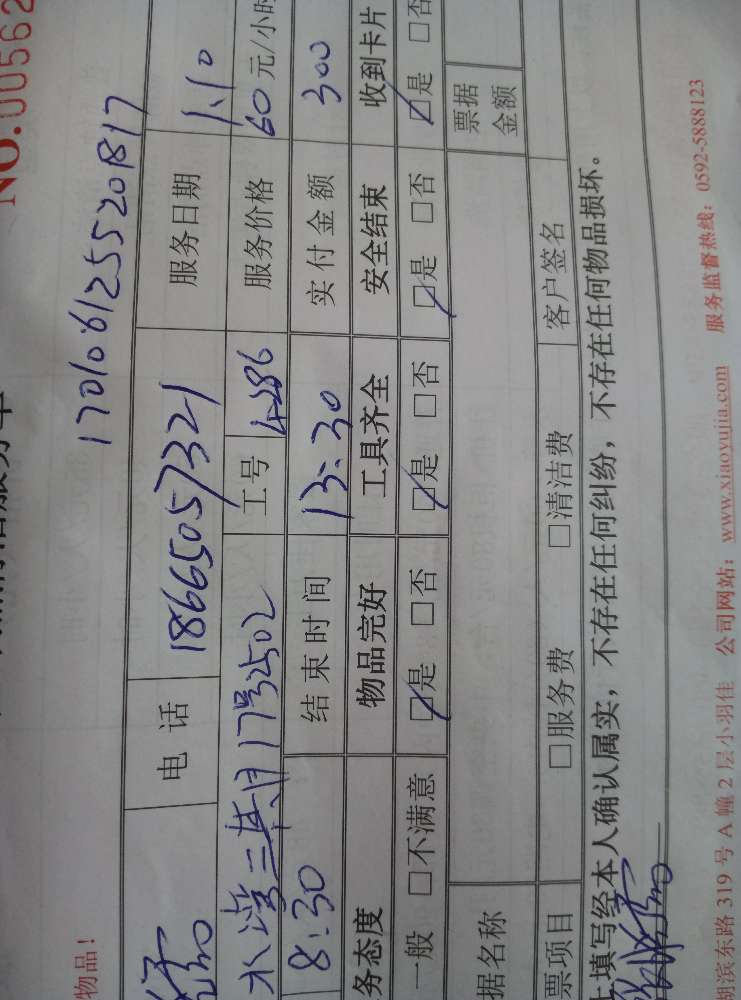 NO.00562
17010612552018 17
电 话 18665057321 服务日期 1.10
水湾三期17号2502 工号 4286 服务价格 60元/小时
8:30 结束时间 13:30 实付金额 300
务态度 物品完好 工具齐全 安全结束 收到卡片
一般 □不满意 ☑是 □否 ☑是 □否 ☑是 □否 ☑是 □否
据名称 票据金额
票项目 □服务费 □清洁费 客户签名
上填写经本人确认属实，不存在任何纠纷，不存在任何物品损坏。
物品!
湖滨东路 319 号 A 幢 2 层小羽佳 公司网站：www.xiaoyujia.com 服务监督热线：0592-5888123